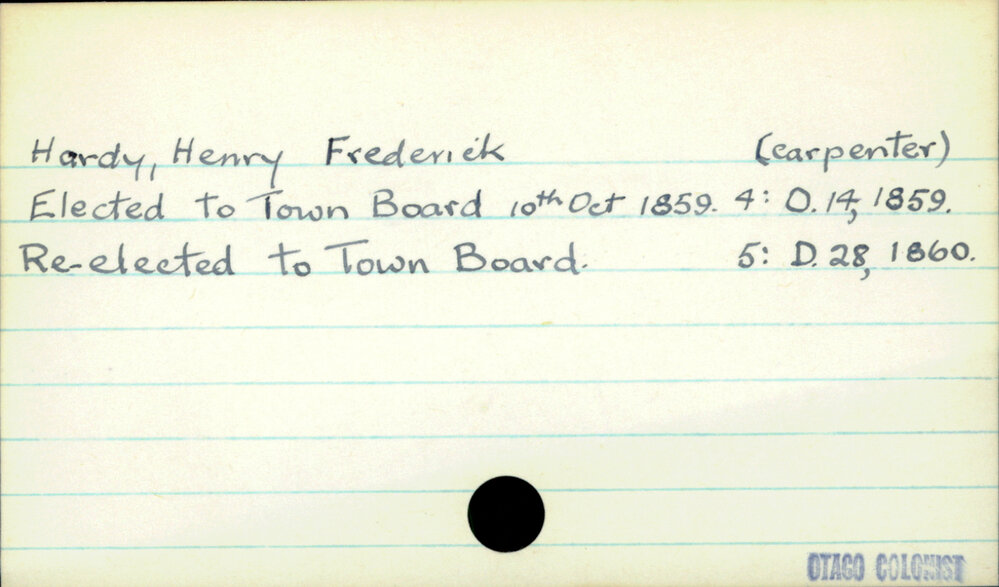 Hardy, Henry Frederick (carpenter)
Elected to Town Board 10th Oct 1859. 4: O. 14, 1859.
Re-elected to Town Board. 5: D. 28, 1860.
OTAGO COLONIST